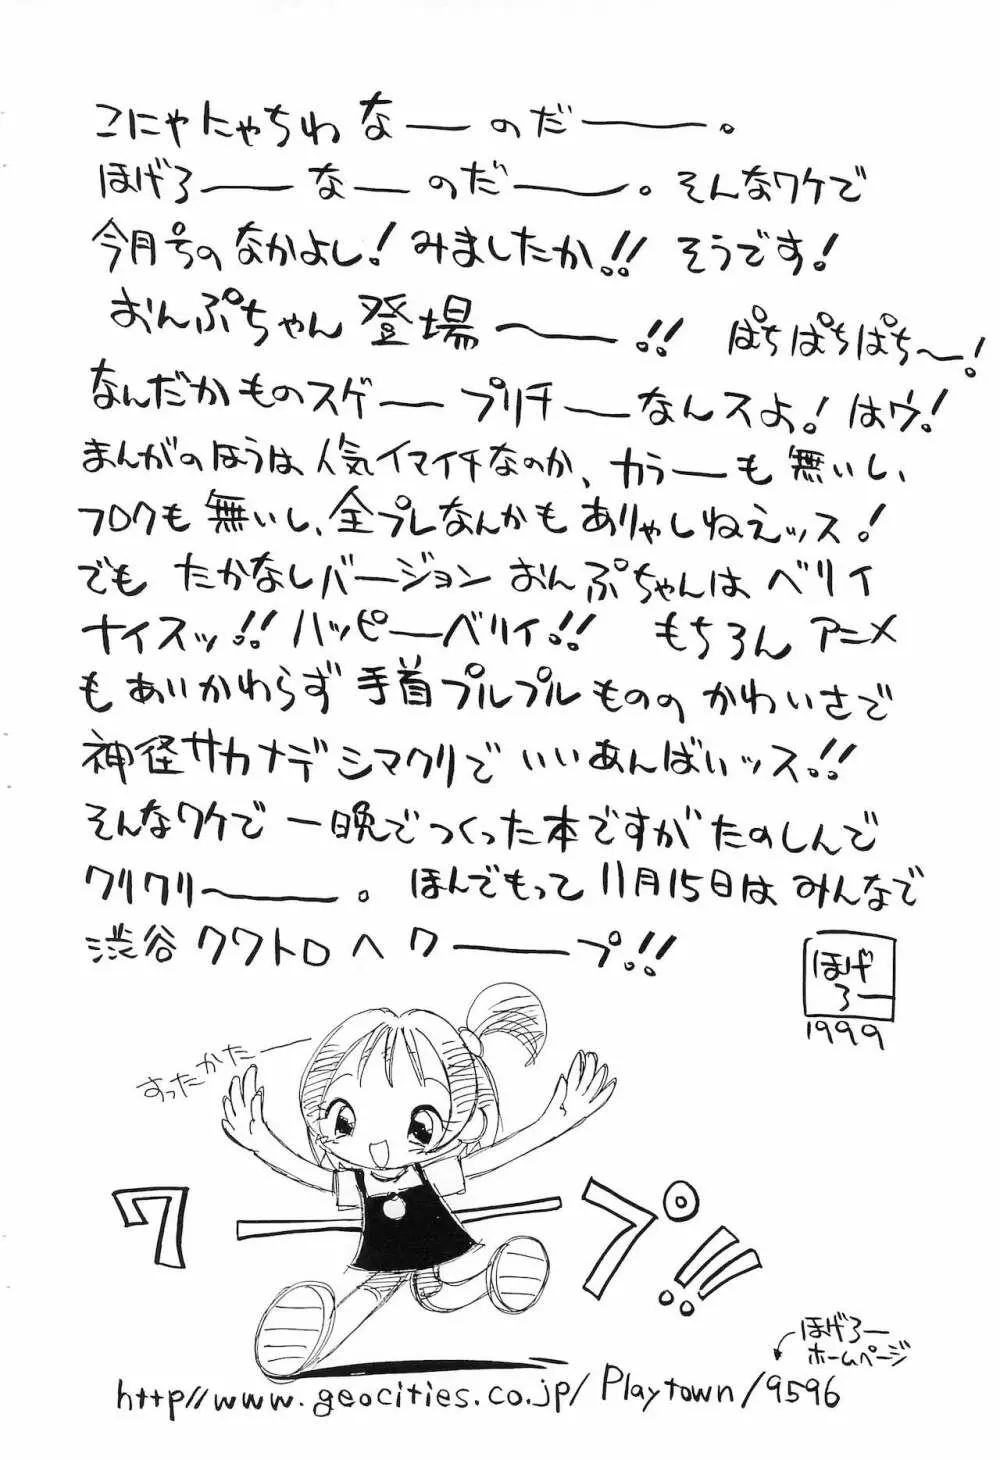 こにゃにゃちわ なーのだー。
ほげろーなーのだー。そんなワケで
今月号のなかよし！みましたか!! そうです！
おんぷちゃん登場ー!! ぱちぱちぱち〜！
なんだかものスゲープリチーなんスよ！はウ！
まんがのほうは人気イマイチなのか、カラーも無いし
フロクも無いし、全プレなんかもありゃしねえッス！
でも たかなしバージョンおんぷちゃんは ベリイ
ナイスッ!! ハッピーベリイ!! もちろん アニメ
もあいかわらず 手首プルプルものの かわいさで
神径サカナデシマクリで いいあんばいッス!!
そんなワケで 一晩でつくった本ですが たのしんで
クリクリー。ほんでもって 11月15日は みんなで
渋谷 クワトロへ ワープ!!
ほげ
ろー
1999
すったかたー
ワープ!!!
ほげろー
ホームページ
http//www.geocities.co.jp/Playtown/9596